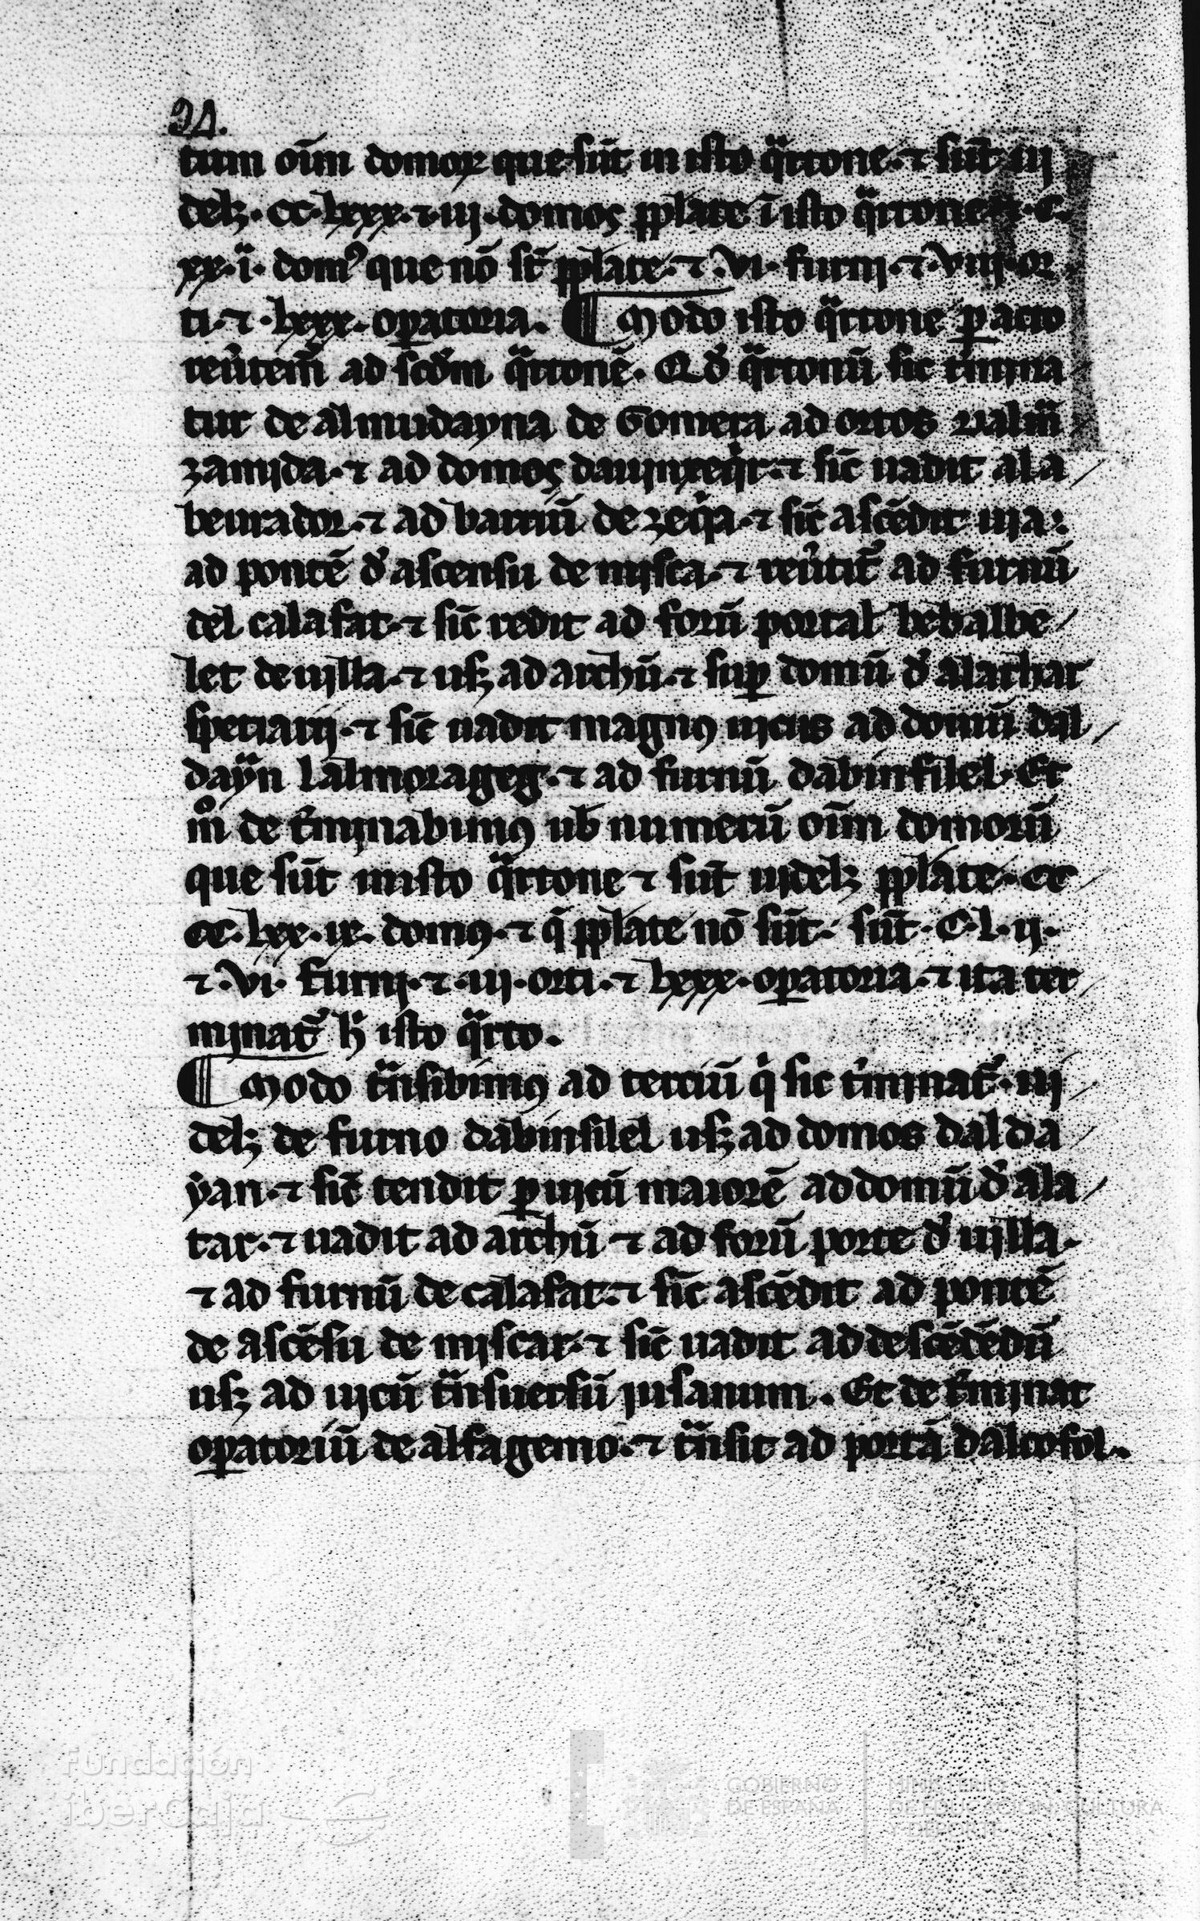 24.
tum oīm domoꝝ que sūt in isto q̄rtone· ⁊ sūt· ui
delꝫ· cc· lxxx· ⁊ iii· domos pplate ī isto q̄rtone· c·
xx· i· domꝰ que nō st̄ pplate· ⁊ · vi· furni· ⁊ · viii· or
ti· ⁊ · lxxx· oꝑatoria· ¶ Modo isto q̄rtone ꝑacto
ad scd̄m q̄rtonē· Qd̓ q̄rtonū sic t̓mina
tur de almudayna de Gomera ad ortos
zamida· ⁊ ad domos ⁊ sic̄ uadit al a
beurador· ⁊ ad barriū de zeq̓a· ⁊ sic̄ ascēdit uia
ad pontē d̓ ascensu de misca· ⁊ reu̓tit̄ ad furnū
del calafat· ⁊ sic̄ redit ad forū portal bebalbe
let de uilla· ⁊ usꝫ ad archū· ⁊ suꝑ domū d̓ alathar
speciarii· ⁊ sic̄ uadit magnꝰ uicus ad domū dal
dayā lalmorageg· ⁊ ad furnū dabinfilel· Et
m̊ de t̓minabimꝰ ub numerū oīm domorū
que sūt in isto q̄rtone ⁊ sūt uidelꝫ pplate· cc
cc· lxx· ix· domꝰ· ⁊ q̄ pplate nō sūt· sūt· C· l· ii·
⁊ · vi· furni· ⁊ · iii· orti· ⁊ lxxx· oꝑatoria· ⁊ ita ter
minat̄ h̄ isto q̄rto·
¶ Modo t̄nsibimꝰ ad terciū q̓ sic t̓minat̄· ui
delꝫ de furno dabinfilel usꝫ ad domos dal da
yan· ⁊ sic̄ tendit ꝑ uicū maiorē ad domū d̓ ala
tar· ⁊ uadit ad archū ⁊ ad forū porte d̓ uilla·
⁊ ad furnū de calafat· ⁊ sic̄ ascēdit ad pontē
de ascēsu de miscar· ⁊ sic̄ uadit ad descēdēdū
usꝫ ad uicū t̄nsuersū iusanum· Et de t̓minat
oꝑatoriū de alfagemo· ⁊ t̄nsit ad portā dalcofol·
fundación
iberCaja
GOBIERNO
DE ESPAÑA
MINISTERIO
DE EDUCACIÓN, CULTURA